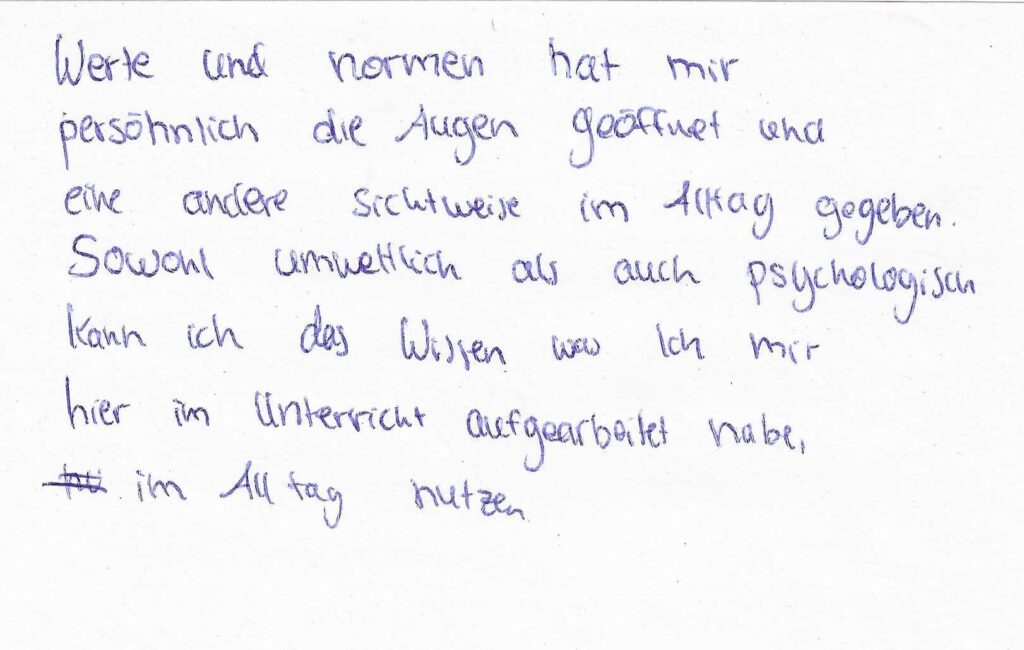 Werte und normen hat mir
persöhnlich die Augen geöffnet und
eine andere sichtweise im Alltag gegeben.
Sowohl umweltlich als auch psychologisch
kann ich das Wissen was Ich mir
hier im Unterricht aufgearbeitet habe,
im Alltag nutzen